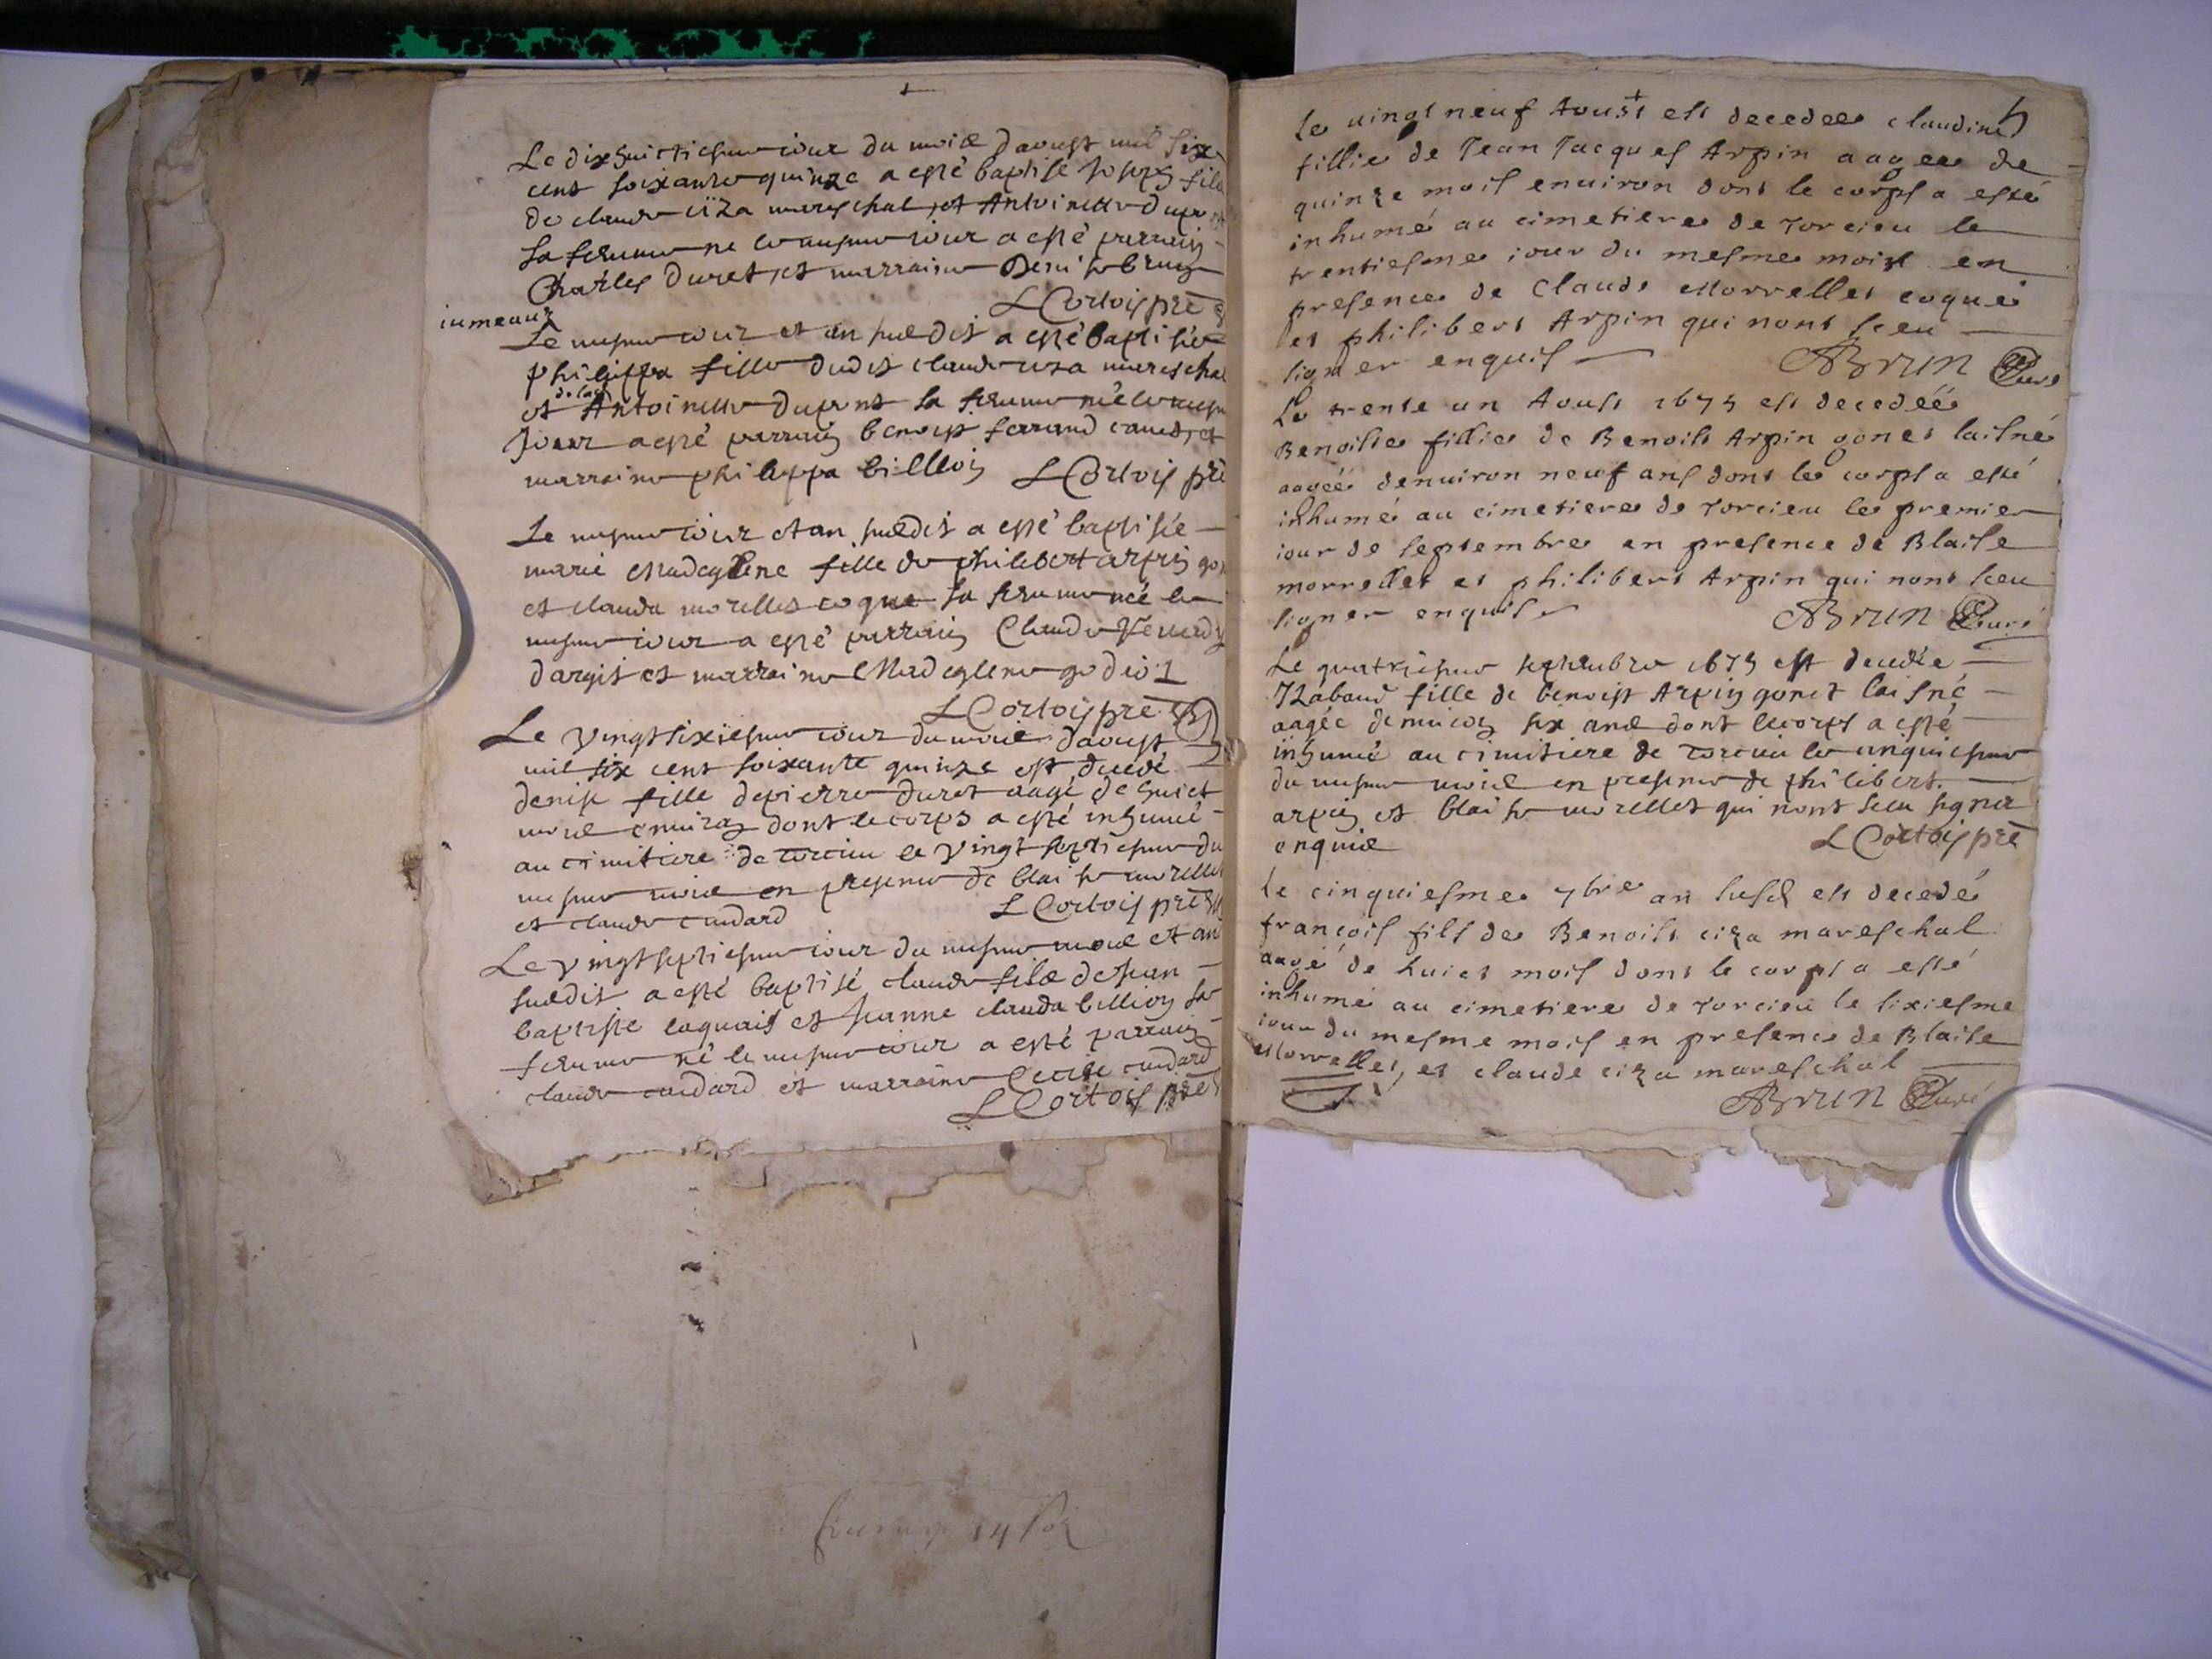 Le dixhuictiesme iour du mois daoust mil six
cent soixante quinze a esté baptisé Joseph fils
de claude ciza mareschal, et Antoinette dupont
sa femme ne le mesme iour a esté parrain
Charles duret, et marraine Denise brun
L Cortois pre
iumeaux
Le mesme iour et an susdit a esté baptisée
philippa fille dudit claude ciza mareschal
et Antoinette dupont sa femme née le mesme
Jour a esté parrain benoist ferrand et
marraine philippa billion L Cortois pre
Le mesme iour et an susdit a esté baptisée
marie Madeglene fille de philibert arpin
et clauda morellet coque sa femme née le
mesme iour a esté parrain Claude
dargit et marraine Madeglene
L Cortois pre
Le vingt sixiesme iour du mois daoust
mil six cent soixante quinze est decede
denise fille de pierre duret aagé de huict
mois environ dont le corps a esté inhumé
au cimitiere de torcieu le vingt septiesme du
mesme mois en presence de blaise morellet
et claude cuidard L Cortois pre
Le vingt septiesme iour du mesme mois et an
susdit a esté baptisé claude fils de Jean
baptiste laquais et Jeanne clauda billion sa
femme né le mesme iour a esté parrain
claude cuidard et marraine Cecile cuidard
L Cortois pre
5
le uingt neuf Aoust est decedee claudine
fillie de Jean Jacques Arpin aagee de
quinze mois enuiron dont le corps a esté
inhumé au cimetiere de torcieu le
trentiesme iour du mesme mois en
presence de Claude Morrellet coque
et philibert Arpin qui nont sceu
signer enquis ABrun Curé
Le trente un Aoust 1675 est decedéé
Benoiste fillie de Benoist Arpin gonet laisné
aagéé denuiron neuf ans dont le corps a esté
inhumé au cimetiere de torcieu le premier
iour de septembre en presence de Blaise
morrellet et philibert Arpin qui nont sceu
signer enquis ABrun Curé
Le quatriesme septembre 1675 est decedée
Izabaud fille de benoist Arpin gonet laisné
aagée denuiron six ans dont le corps a esté
inhumé au cimitiere de torcieu le cinquiesme
du mesme mois en presence de philibert
arpin et blaise morellet qui nont sceu signer
enquis L Cortois pre
Le cinquiesme 7bre an susd est decedé
francois fils de Benoist ciza mareschal
aagé de huict mois dont le corps a esté
inhumé au cimetiere de torcieu le sixiesme
iour du mesme mois en presence de Blaise
Morrellet, et claude ciza mareschal
ABrun Curé